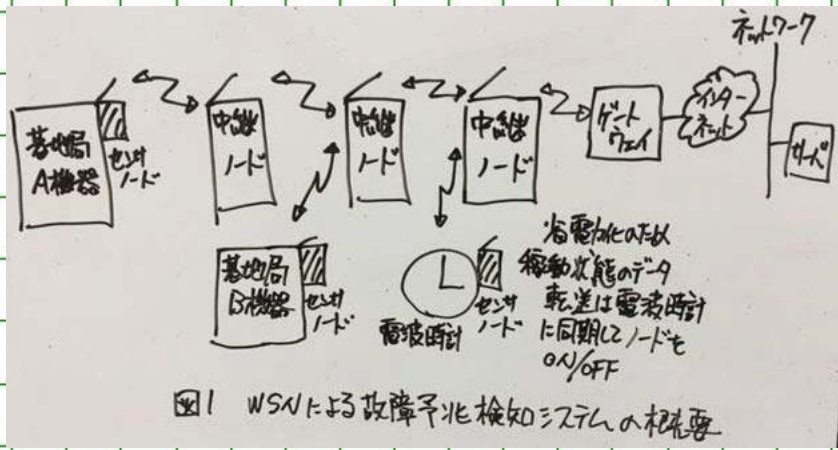 ネットワーク
基地局
A機器
センサ
ノード
中継
ノード
中継
ノード
中継
ノード
ゲート
ウェイ
インター
ネット
サーバ
基地局
B機器
センサ
ノード
電波時計
センサ
ノード
省電力化のため
稼動状態のデータ
転送は電波時計
に同期してノードを
ON/OFF
図1 WSNによる故障予兆検知システムの概要